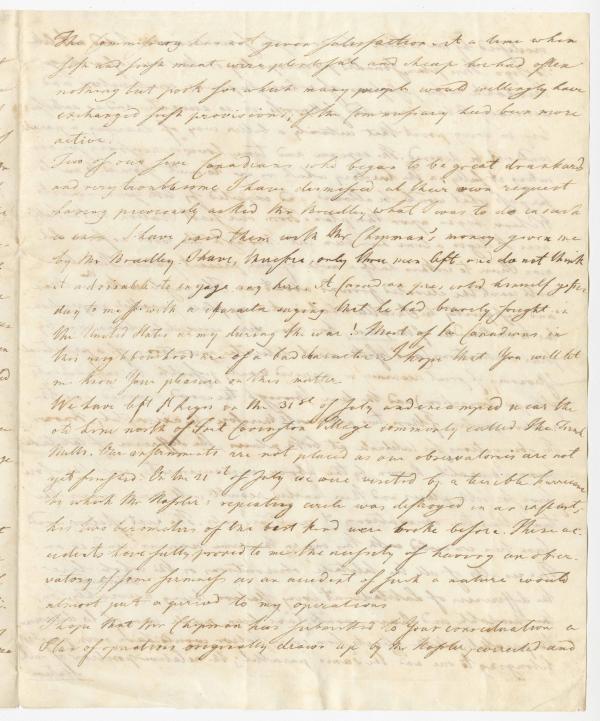 The Commissary has not given satisfaction. At a time when
fish and fresh meat were plentiful and cheap he had often
nothing but pork for which many people would willingly have
exchanged fresh provisions, if the Commissary had been more
active.
Two of our five Canadians, who began to be great drunkards
and very troublesome I have dismissed at their own request
having previously asked Mr Bradley what I was to do in such
a case. I have paid them with Mr Chapman's money given me
by Mr Bradley I have, therefore, only three men left, and do not think
it advisable to engage any here. A Canadian presented himself yester
day to me with a character saying that he had bravely fought in
the United States army during the war! Most of the Canadians in
this neighbourhood are of a bad character. I hope that You will let
me know Your pleasure on this matter.
We have left St Regis on the 31st of July and encamped near the
old line north of Fort Covington Village commonly called The French
Mills. Our instruments are not placed as our observatories are not
yet finished. On the 21st of July we were visited by a terrible hurricane
by which Mr Hassler's repeating circle was destroyed in as
his two barometers of the best kind were broke before. These ac-
cidents have fully proved to me the necessity of having an obser-
vatory of some firmness as an accident of such a nature would
almost put a period to my operations
I hope that Mr Chapman has submitted to Your consideration a
Plan of operations originally drawn up by Mr Hassler, corrected and